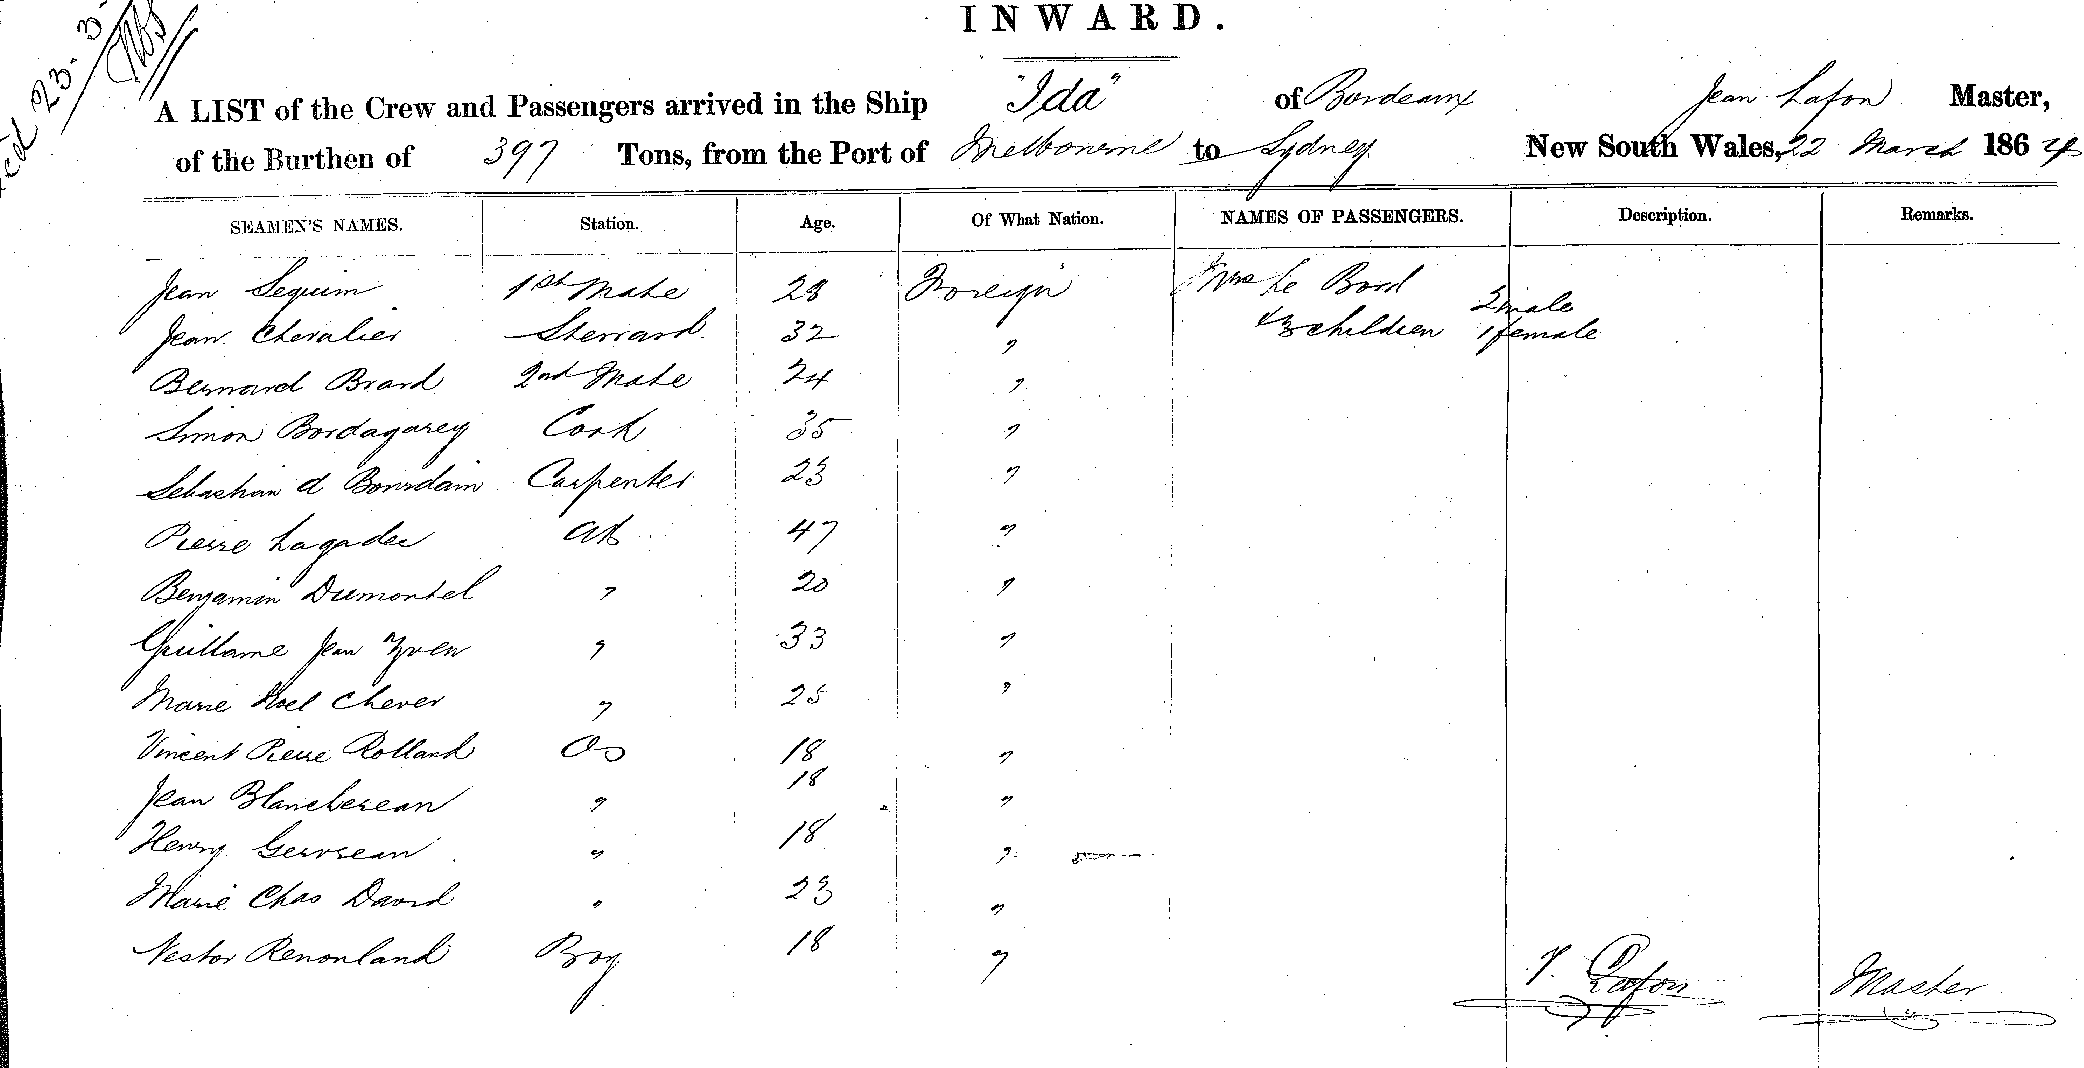 INWARD.
Rec'd 23-3-
A LIST of the Crew and Passengers arrived in the Ship "Ida" of Bordeaux Jean Lafon Master,
of the Burthen of 397 Tons, from the Port of Melbourne to Sydney New South Wales, 22 March 1864
SEAMEN'S NAMES. Station. Age. Of What Nation. NAMES OF PASSENGERS. Description. Remarks.
Jean Seguim 1st Mate 28 Foreign Mrs Le Bord 2 male
Jean Chevalier Steward 32 " & 3 children 1 female
Bernard Brard 2nd Mate 24 "
Simon Bordagarey Cook 35 "
Sebashian d Bourdain Carpenter 23 "
Pierre Lagadec AB 47 "
Benjamin Dumontel " 20 "
Guillame Jean Yven " 33 "
Marie Noel Chever " 25 "
Vincent Pierre Rolland OS 18 "
Jean Blanchereau " 18 "
Henry " 18 "
Marie Chas David " 23 "
Nestor Renouland Boy 18 "
J. Lafon Master